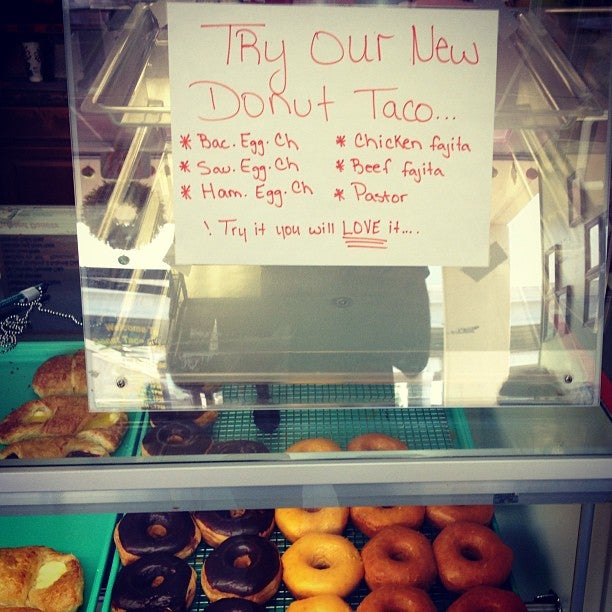 Try Our New
Donut Taco...
* Bac. Egg. Ch
* Sau. Egg. Ch
* Ham. Egg. Ch
* Chicken fajita
* Beef fajita
* Pastor
! Try it you will LOVE it....